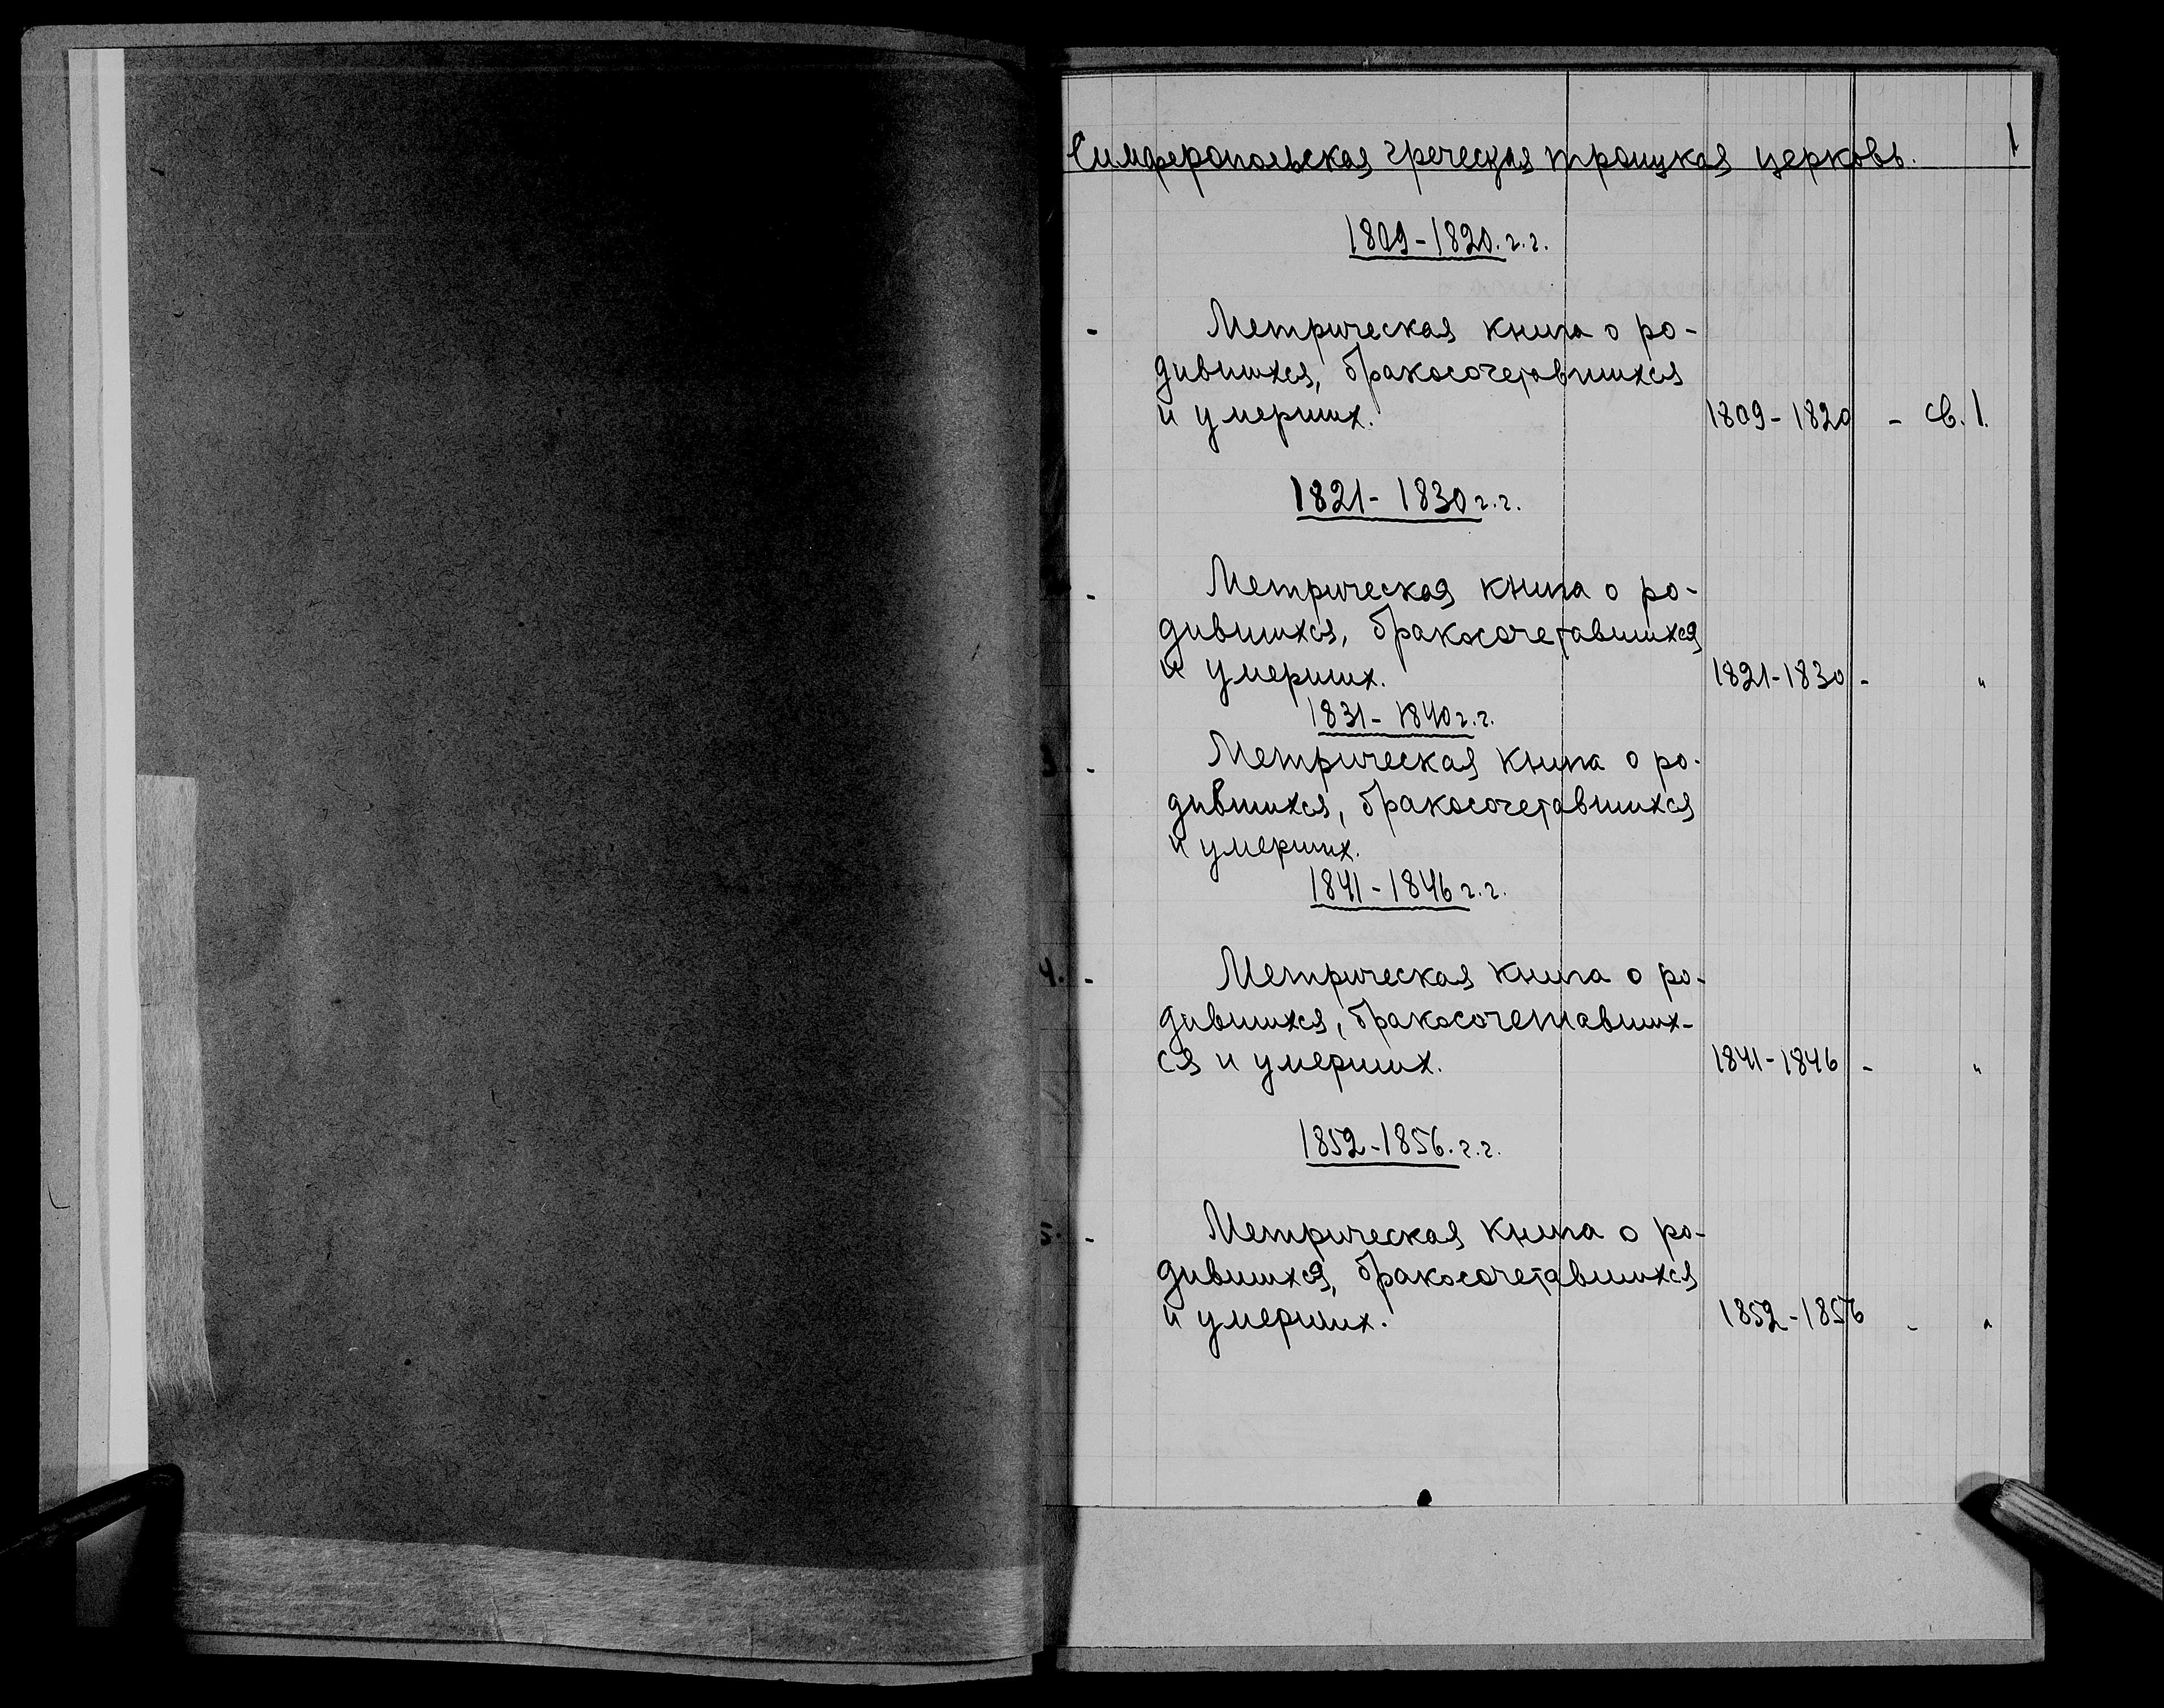 1
Симферопольская греческая троицкая церковь.
1809-1820. г.г.
- Метрическая книга о ро-
дившихся, бракосочетавшихся
и умерших. 1809-1820 - св. 1.
1821-1830 г.г.
- Метрическая книга о ро-
дившихся, бракосочетавшихся
и умерших. 1821-1830 - "
1831-1840 г.г.
3. - Метрическая книга о ро-
дившихся, бракосочетавшихся
и умерших.
1841-1846 г.г.
4. - Метрическая книга о ро-
дившихся, бракосочетавших-
ся и умерших. 1841-1846 - "
1852-1856. г.г.
5. - Метрическая книга о ро-
дившихся, бракосочетавшихся
и умерших. 1852-1856 - "